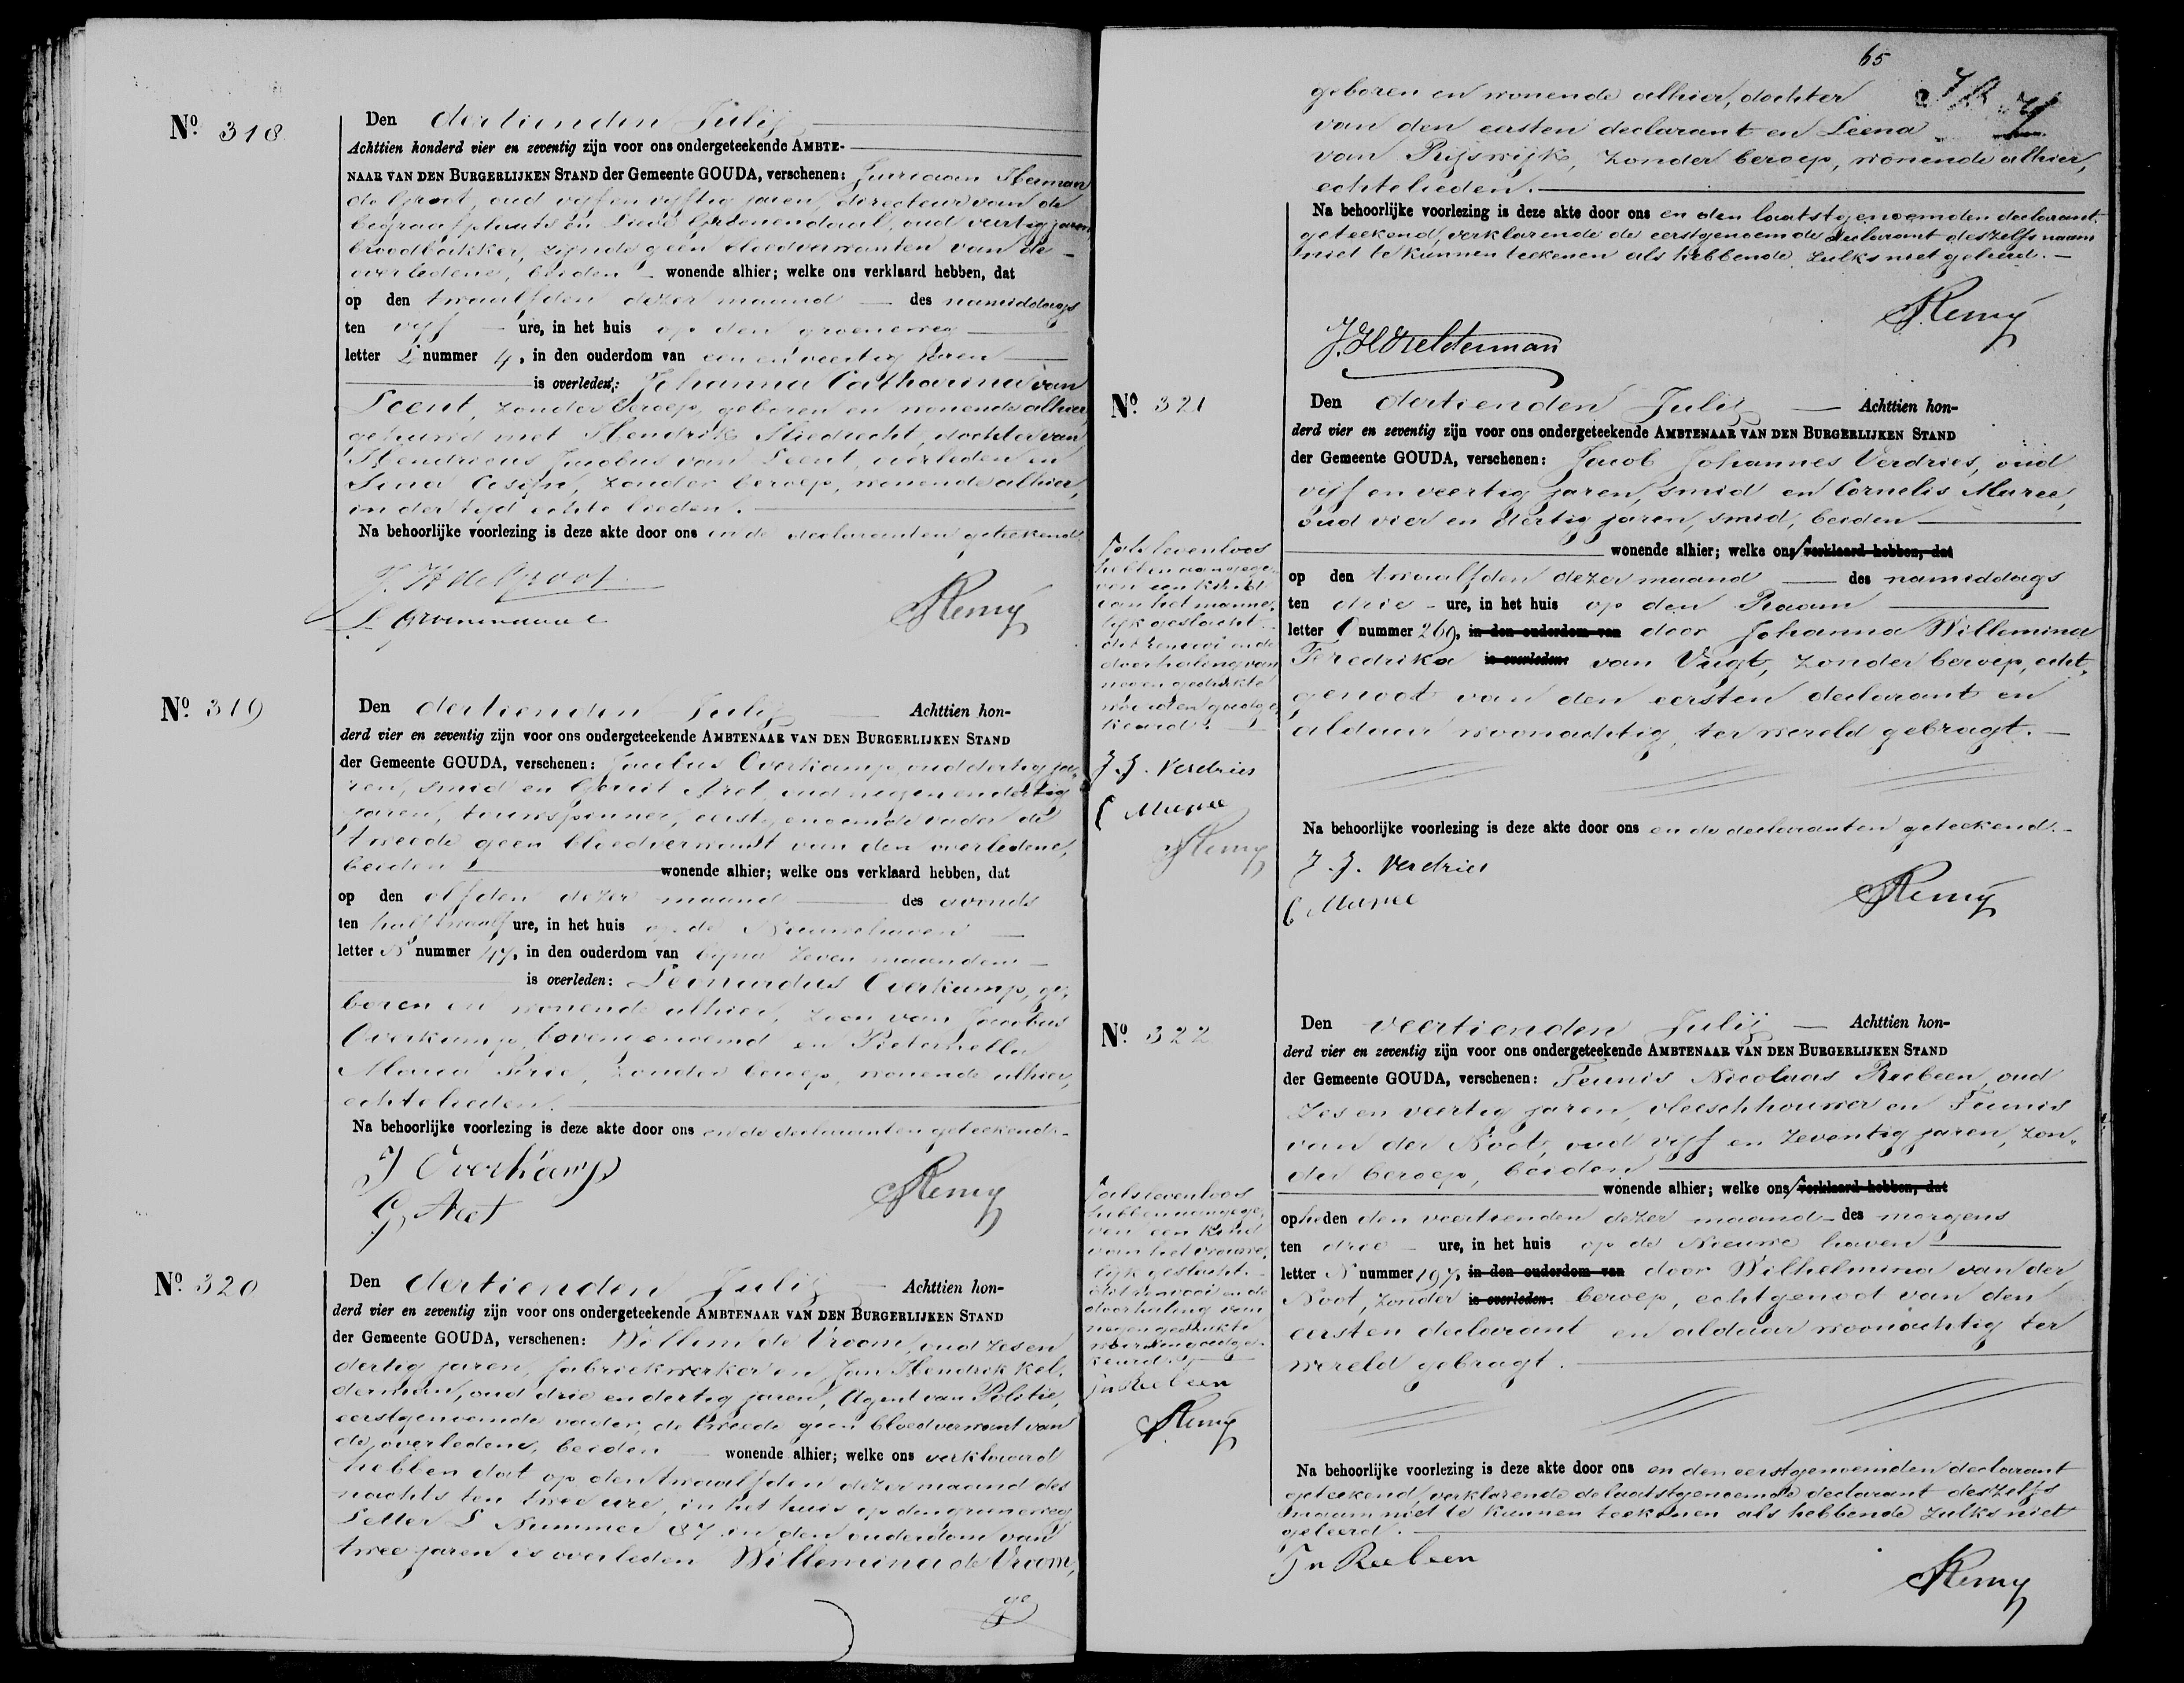 Nº 318
Den dertienden Julij
Achttien honderd vier en zeventig zijn voor ons ondergeteekende AMBTE-
NAAR VAN DEN BURGERLIJKEN STAND der Gemeente GOUDA, verschenen: Jurriaan Herman
de Groot, oud vijf en vijftig jaren, directeur van de
begraafplaats en Groenendaal, oud veertig jaren
broodbakker, zijnde geen bloedverwanten van de
overledene, beiden wonende alhier; welke ons verklaard hebben, dat
op den twaalfden dezer maand des namiddags
ten vijf ure, in het huis op den groeneweg
letter L nummer 4, in den ouderdom van een en veertig jaren
is overleden: Johanna Catharina van
Leent, zonder beroep, geboren en wonende alhier,
gehuwd met Hendrik Sliedrecht, dochter van
Hendricus Jacobus van Leent, overleden en
zonder beroep, wonende alhier,
in der tijd echtelieden.
Na behoorlijke voorlezing is deze akte door ons en de declaranten geteekend.
J. H. de Groot
L Groenendaal
Remy
Nº 319
Den dertienden Julij Achttien hon-
derd vier en zeventig zijn voor ons ondergeteekende AMBTENAAR VAN DEN BURGERLIJKEN STAND
der Gemeente GOUDA, verschenen: Jacobus Overkamp, oud dertig ja-
ren, smid en Gerrit oud negen en dertig
jaren, touwspinner, eerstgenoemde vader de
tweede geen bloedverwant van den overledene,
beiden wonende alhier; welke ons verklaard hebben, dat
op den elfden dezer maand des avonds
ten half twaalf ure, in het huis op de Nieuwehaven
letter N nummer 47, in den ouderdom van bijna zeven maanden
is overleden: Leonardus Overkamp, ge-
boren en wonende alhier, zoon van Jacobus
Overkamp, bovengenoemd en Pieternella
Maria zonder beroep, wonende alhier,
echtelieden.
Na behoorlijke voorlezing is deze akte door ons en de declaranten geteekend.
J Overkamp
G
Remy
Nº 320
Den dertienden Julij Achttien hon-
derd vier en zeventig zijn voor ons ondergeteekende AMBTENAAR VAN DEN BURGERLIJKEN STAND
der Gemeente GOUDA, verschenen: Willem de Vroom, oud zes en
dertig jaren, fabriekwerker en Jan Hendrik Kel-
derman, oud drie en dertig jaren, Agent van Politie,
eerstgenoemde vader, de tweede geen bloedverwant van
de overledene, beiden wonende alhier; welke ons verklaard
hebben dat op den twaalfden dezer maand des
nachts ten twee ure, in het huis op den groeneweg
Letter L Nummer 87 in den ouderdom van
twee jaren is overleden Willemina de Vroom,
ge
65
geboren en wonende alhier, dochter
van den eersten declarant en Leena
van Rijswijk, zonder beroep, wonende alhier,
echtelieden.
Na behoorlijke voorlezing is deze akte door ons en den laatstgenoemden declarant
geteekend, verklarende de eerstgenoemde declarant deszelfs naam
niet te kunnen teekenen als hebbende zulks niet geleerd.
Remy
J. H Kelderman
Nº 321
Den dertienden Julij Achttien hon-
derd vier en zeventig zijn voor ons ondergeteekende AMBTENAAR VAN DEN BURGERLIJKEN STAND
der Gemeente GOUDA, verschenen: Jacob Johannes Verdries, oud
vijf en veertig jaren, smid en Cornelis Maree,
oud vier en dertig jaren, smid, beiden
wonende alhier; welke ons verklaard hebben, dat
op den twaalfden dezer maand des namiddags
ten drie ure, in het huis op den Raam
letter O nummer 269, in den ouderdom van door Johanna Willemina
Feredrika is overleden: van Vugt, zonder beroep, echt-
genoot van den eersten declarant en
aldaar woonachtig, ter wereld gebragt.
Na behoorlijke voorlezing is deze akte door ons en de declaranten geteekend.
J. J. Verdries
C Maree
Remy
als levenloos
hebben aangege-
ven een kind
van het manne-
lijk geslacht.
dit renvooi en de
doorhaling van
negen gedrukte
woorden goedge-
keurd.
J. J. Verdries
C Maree
Remy
Nº 322
Den veertienden Julij Achttien hon-
derd vier en zeventig zijn voor ons ondergeteekende AMBTENAAR VAN DEN BURGERLIJKEN STAND
der Gemeente GOUDA, verschenen: Teunis Nicolaas Reebeen, oud
zes en veertig jaren, vleeschhouwer en Teunis
van der Noot, oud vijf en zeventig jaren, zon-
der beroep, beiden
wonende alhier; welke ons verklaard hebben, dat
op heden den veertienden dezer maand des morgens
ten drie ure, in het huis op de Nieuwe haven
letter N nummer 197, in den ouderdom van door Wilhelmina van der
Noot, zonder is overleden: beroep, echtgenoot van den
eersten declarant en aldaar woonachtig ter
wereld gebragt.
Na behoorlijke voorlezing is deze akte door ons en den eerstgenoemden declarant
geteekend, verklarende de laatstgenoemde declarant deszelfs
naam niet te kunnen teekenen als hebbende zulks niet
geleerd.
T n Reebeen
Remy
als levenloos
hebben aangege-
ven een kind
van het vrouwe-
lijk geslacht.
dit renvooi en de
doorhaling van
negen gedrukte
woorden goedge-
keurd.
T n Reebeen
Remy